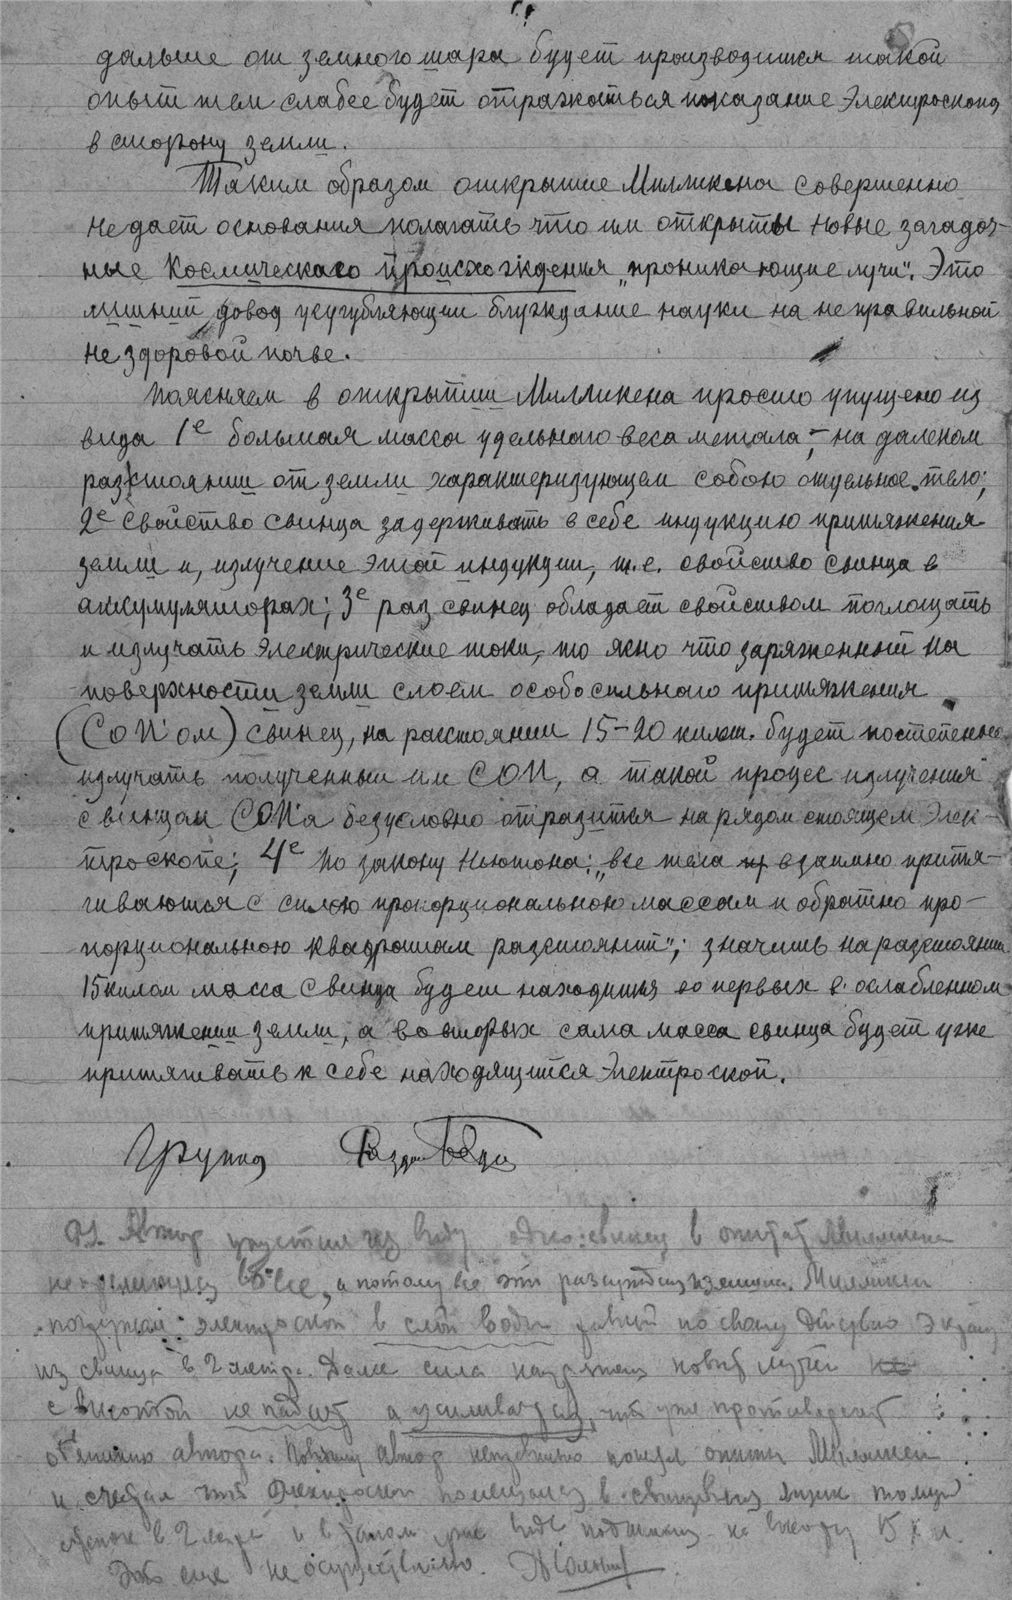 5
дальше от земного шара будет производится такой
опыт тем слабее будет отражаться показание Электроскопа
в сторону земли.
Таким образом открытие Милликена совершенно
не дает основания полагать что им открыты новые загадоч-
ные Космического происхождения „проникающие лучи“. Это
лишний довод усугубляющий блуждание науки на неправильной
не здоровой почве.
Поясняем в открытии Милликена просто упущено из
вида 1е большая масса удельного веса метала, – на далеком
разстоянии от земли характеризующем собою отдельное тело;
2е свойство свинца задерживать в себе индукцию притяжения
земли и, излучение этой индукции, т.е. свойство свинца в
аккумуляторах; 3е раз свинец обладает свойством поглощать
и излучать Электрические токи, то ясно что заряженный на
поверхности земли слоем особосильного притяжения
(СОП'ом) свинец, на расстоянии 15–20 килом. будет постепенно
излучать полученный им СОП, а такой процес излучения
свинцом СОП'а безусловно отразится на рядом стоящем Элек-
троскопе; 4е По закону Ньютона: „все тела взаимно притя-
гиваются с силою пропорциональною массам и обратно про-
порциональною квадратам разстояний“; значить на разстоянии
15 килом масса свинца будет находится во первых в ослабленном
притяжении земли, а во вторых сама масса свинца будет уже
притягивать к себе находящийся Электроскоп.
Группа
Автор упустил из виду одно: свинец в опытах Милликена
вовсе, а потому все эти рассуждения Милликен
погружал электроскоп в слой воды равный по своему действию Экрану
из свинца в 2 метра. Далее сила новых лучей
с высотой не падает а усиливается, что уже противоречит
автора. Поэтому автор понял опыты Милликена
и считал что Электроскоп помещался в свинцовый ящик толщ.
стенок в 2 метра и в таком виде на высоту 15 км.
Это еще не осуществимо.